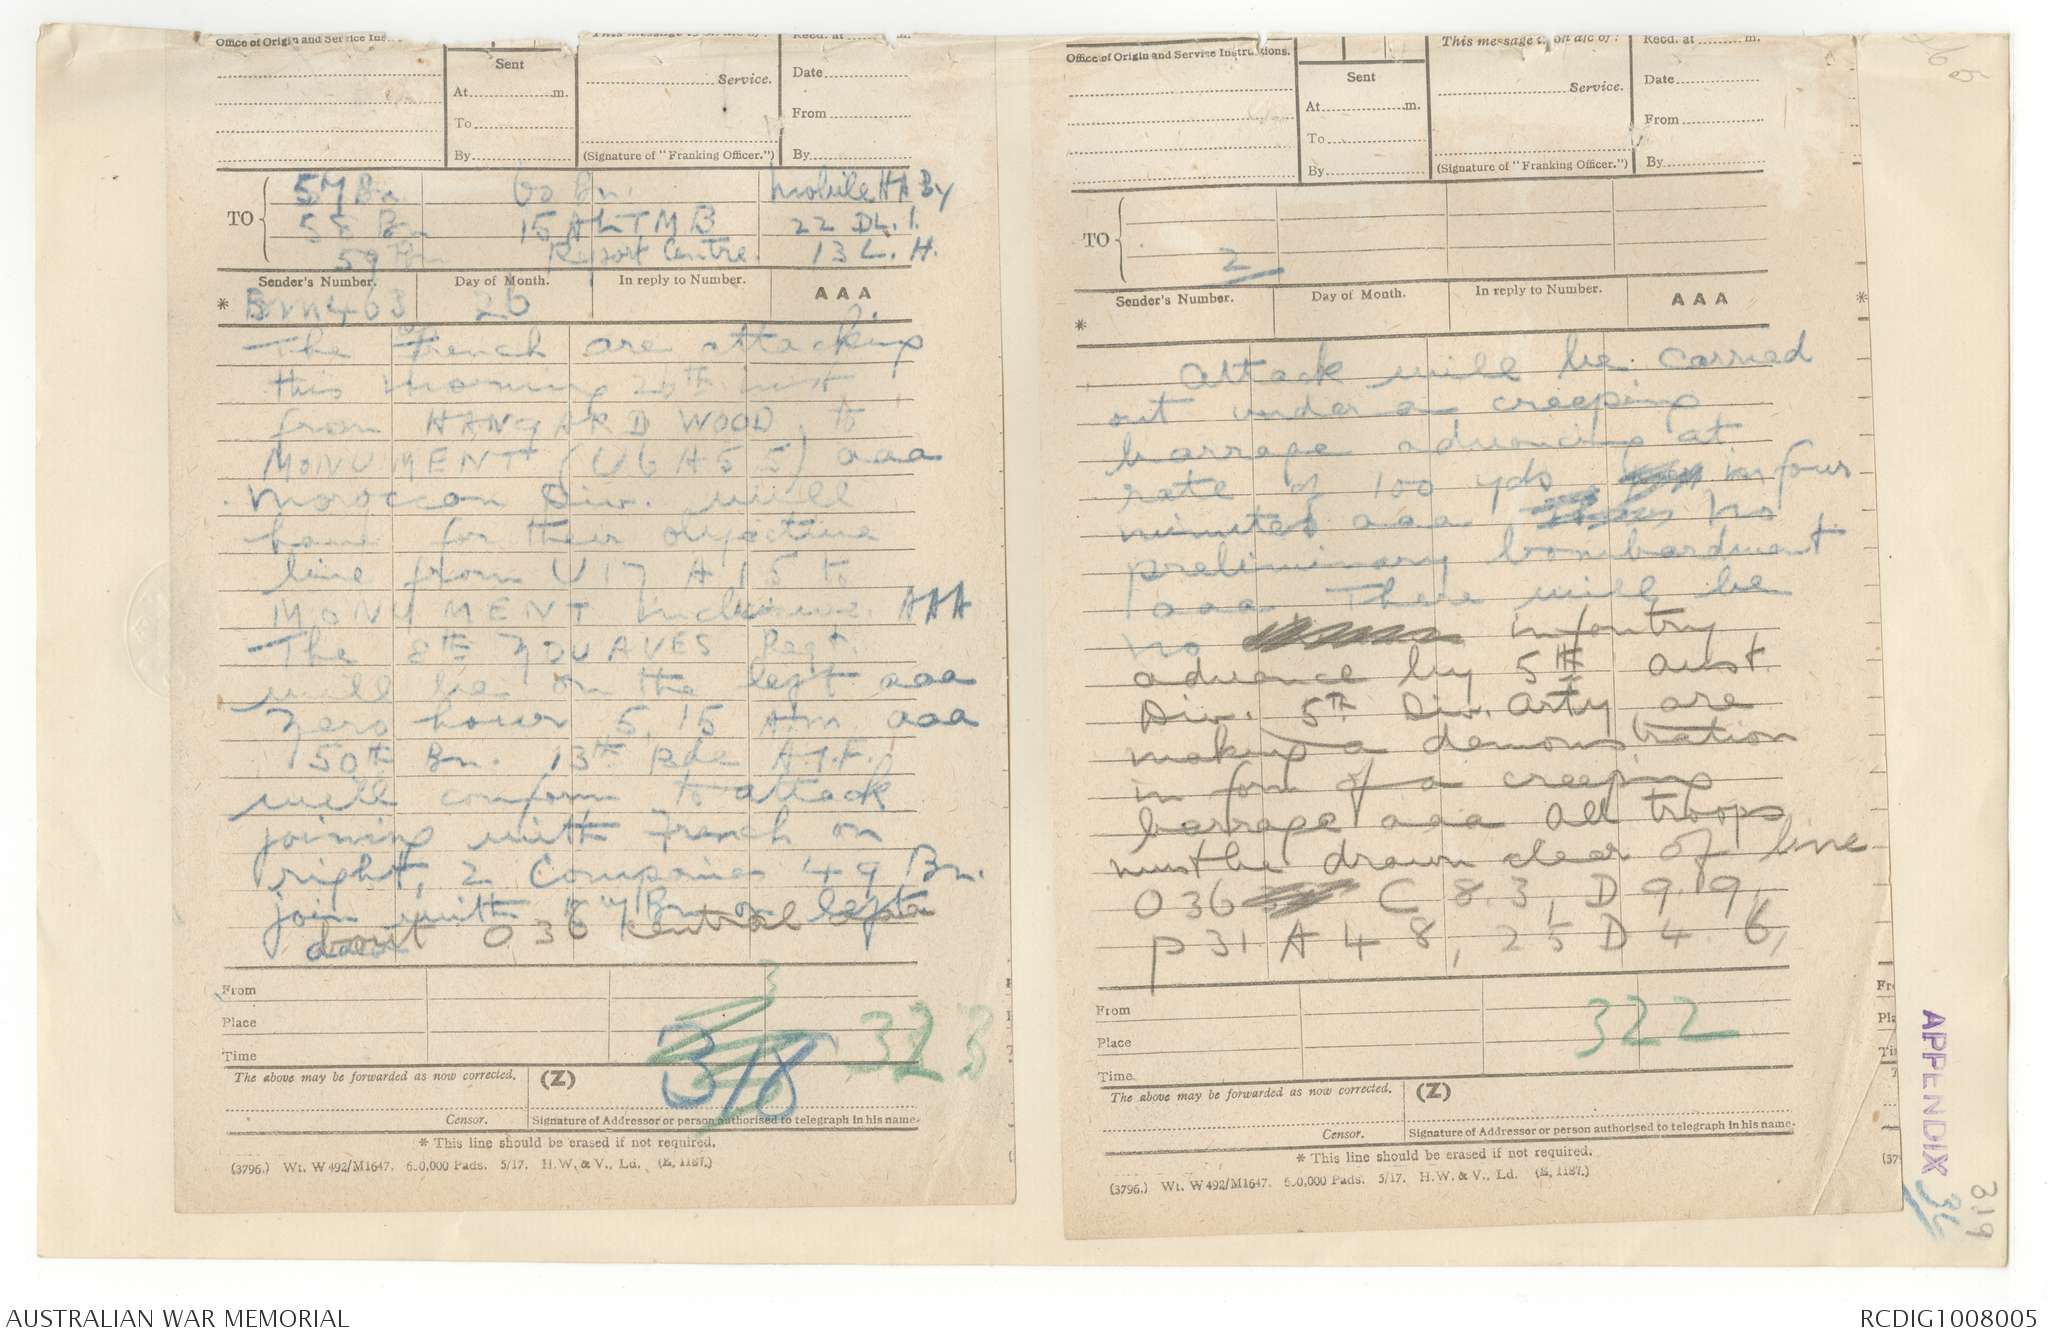 Office of Origin and Service Ins
Sent
At m.
To
By
This message is on a/c of:
Service.
(Signature of "Franking Officer.")
Recd. at m.
Date
From
By
TO
57 Bn 60 Bn. Mobile HA By
58 Bn 15 ALTMB 22 DL.I.
59 Bn Report Centre. 13 L.H.
Sender's Number. Day of Month. In reply to Number. AAA
* BM463 26
The French are attacking
this morning 26th inst
from HANGARD WOOD to
MONUMENT (U6A55) aaa
Moroccan Div. will
have for their objective
line from U17 A 15 to
MONUMENT inclusive AAA
The 8TH ZOUAVES Regt.
will be on the left aaa
Zero hour 5.15 AM aaa
50th Bn. 13th Bde A.I.F.
will conform to attack
joining with French on
right, 2 Companies 49 Bn.
join with 57 Bn on left
about O 36 central aaa
From
Place
Time
318
323
The above may be forwarded as now corrected. (Z)
Censor. Signature of Addressor or person authorised to telegraph in his name.
* This line should be erased if not required.
(3796.) Wt. W492/M1647. 600,000 Pads. 5/17. H.W. & V., Ld. (E. 1187.)
Office of Origin and Service Instructions.
Sent
At m.
To
By
This message is on a/c of:
Service.
(Signature of "Franking Officer.")
Recd. at m.
Date
From
By
TO
2
Sender's Number. Day of Month. In reply to Number. AAA
*
Attack will be carried
out under a creeping
barrage advancing at
rate of 100 yds in four
minutes aaa No
preliminary bombardment
aaa There will be
no infantry
advance by 5TH Aust.
Div. 5TH Div. Arty are
making a demonstration
in form of a creeping
barrage aaa All troops
must be drawn clear of line
O 36 C 8.3, D 9.9,
P 31 A 4 8, 25 D 4.6,
From
Place
Time
322
The above may be forwarded as now corrected. (Z)
Censor. Signature of Addressor or person authorised to telegraph in his name.
* This line should be erased if not required.
(3796.) Wt. W492/M1647. 600,000 Pads. 5/17. H.W. & V., Ld. (E. 1187.)
APPENDIX
319
AUSTRALIAN WAR MEMORIAL
RCDIG1008005